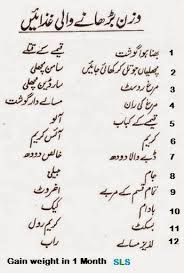 وزن بڑھانے والی غذائیں
1 بھنا ہوا گوشت قیمے کے
2 مچھلیاں جو تلی کر کھائی جائیں سامن مچھلی
3 مرغ روسٹ سارڈین مچھلی
4 مرغ کی ران مسالے دار گوشت
5 قیمے کے کباب آلو
6 آئس کریم کریم
7 ڈبے والا دودھ خالص دودھ
8 جیلی
9 تمام قسم کے مربے اخروٹ
10 بادام کیک
11 بسکٹ کریم رول
12 لذیذ مسالے راب
Gain weight in 1 Month SLS